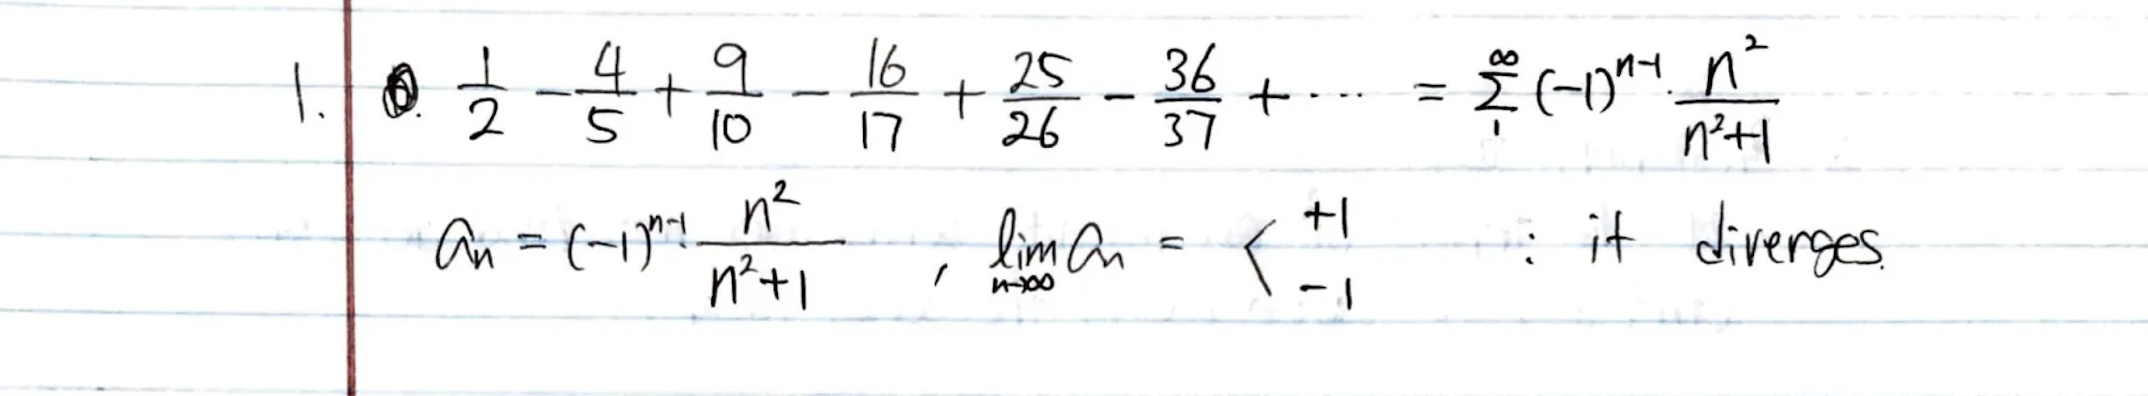 1. 1/2 - 4/5 + 9/10 - 16/17 + 25/26 - 36/37 + ···· = ∑₁^∞ (-1)^(n-1) · n²/(n²+1)
aₙ = (-1)^(n-1) · n²/(n²+1) , lim_(n→∞) aₙ = < +1 -1 : it diverges.